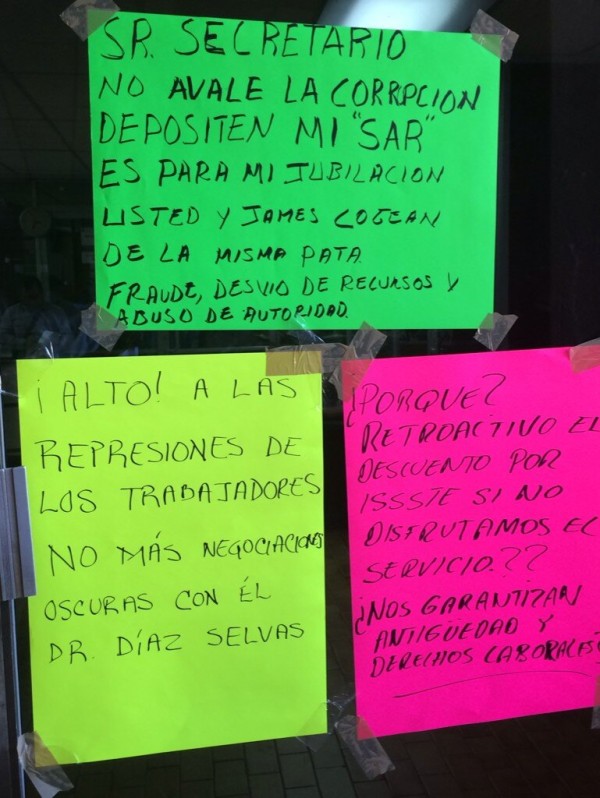 SR. SECRETARIO
NO AVALE LA CORRPCION
DEPOSITEN MI "SAR"
ES PARA MI JUBILACION
USTED Y JAMES COGEAN
DE LA MISMA PATA
FRAUDE, DESVIO DE RECURSOS Y
ABUSO DE AUTORIDAD.
¡ALTO! A LAS
REPRESIONES DE
LOS TRABAJADORES
NO MÁS NEGOCIACIONES
OSCURAS CON ÉL
DR. DÍAZ SELVAS
¿PORQUE?
RETROACTIVO EL
DESCUENTO POR
ISSSTE SI NO
DISFRUTAMOS EL
SERVICIO.??
¿NOS GARANTIZAN
ANTIGÜEDAD Y
DERECHOS LABORALES?